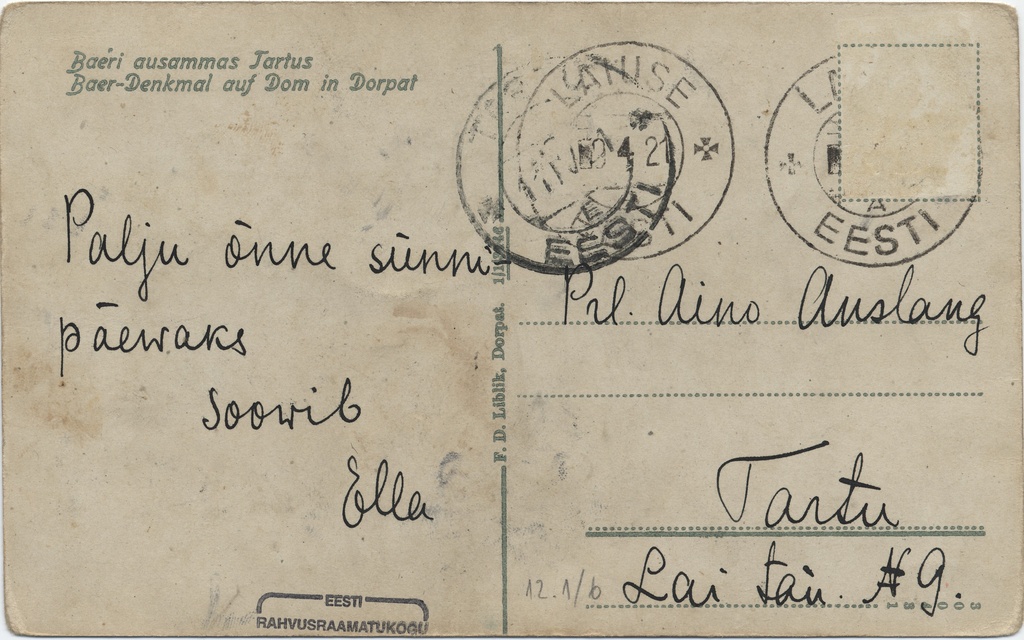 Baeri ausammas Tartus
Baer-Denkmal auf Dom in Dorpat
LAHISE
4 21
EESTI
EESTI
EESTI
Palju õnne sünni-
päewaks
soowib
Ella
F. D. Liblik, Dorpat.
Prl. Aino Auslang
Tartu
Lai tän. № 9.
12.1/b
EESTI
RAHVUSRAAMATUKOGU